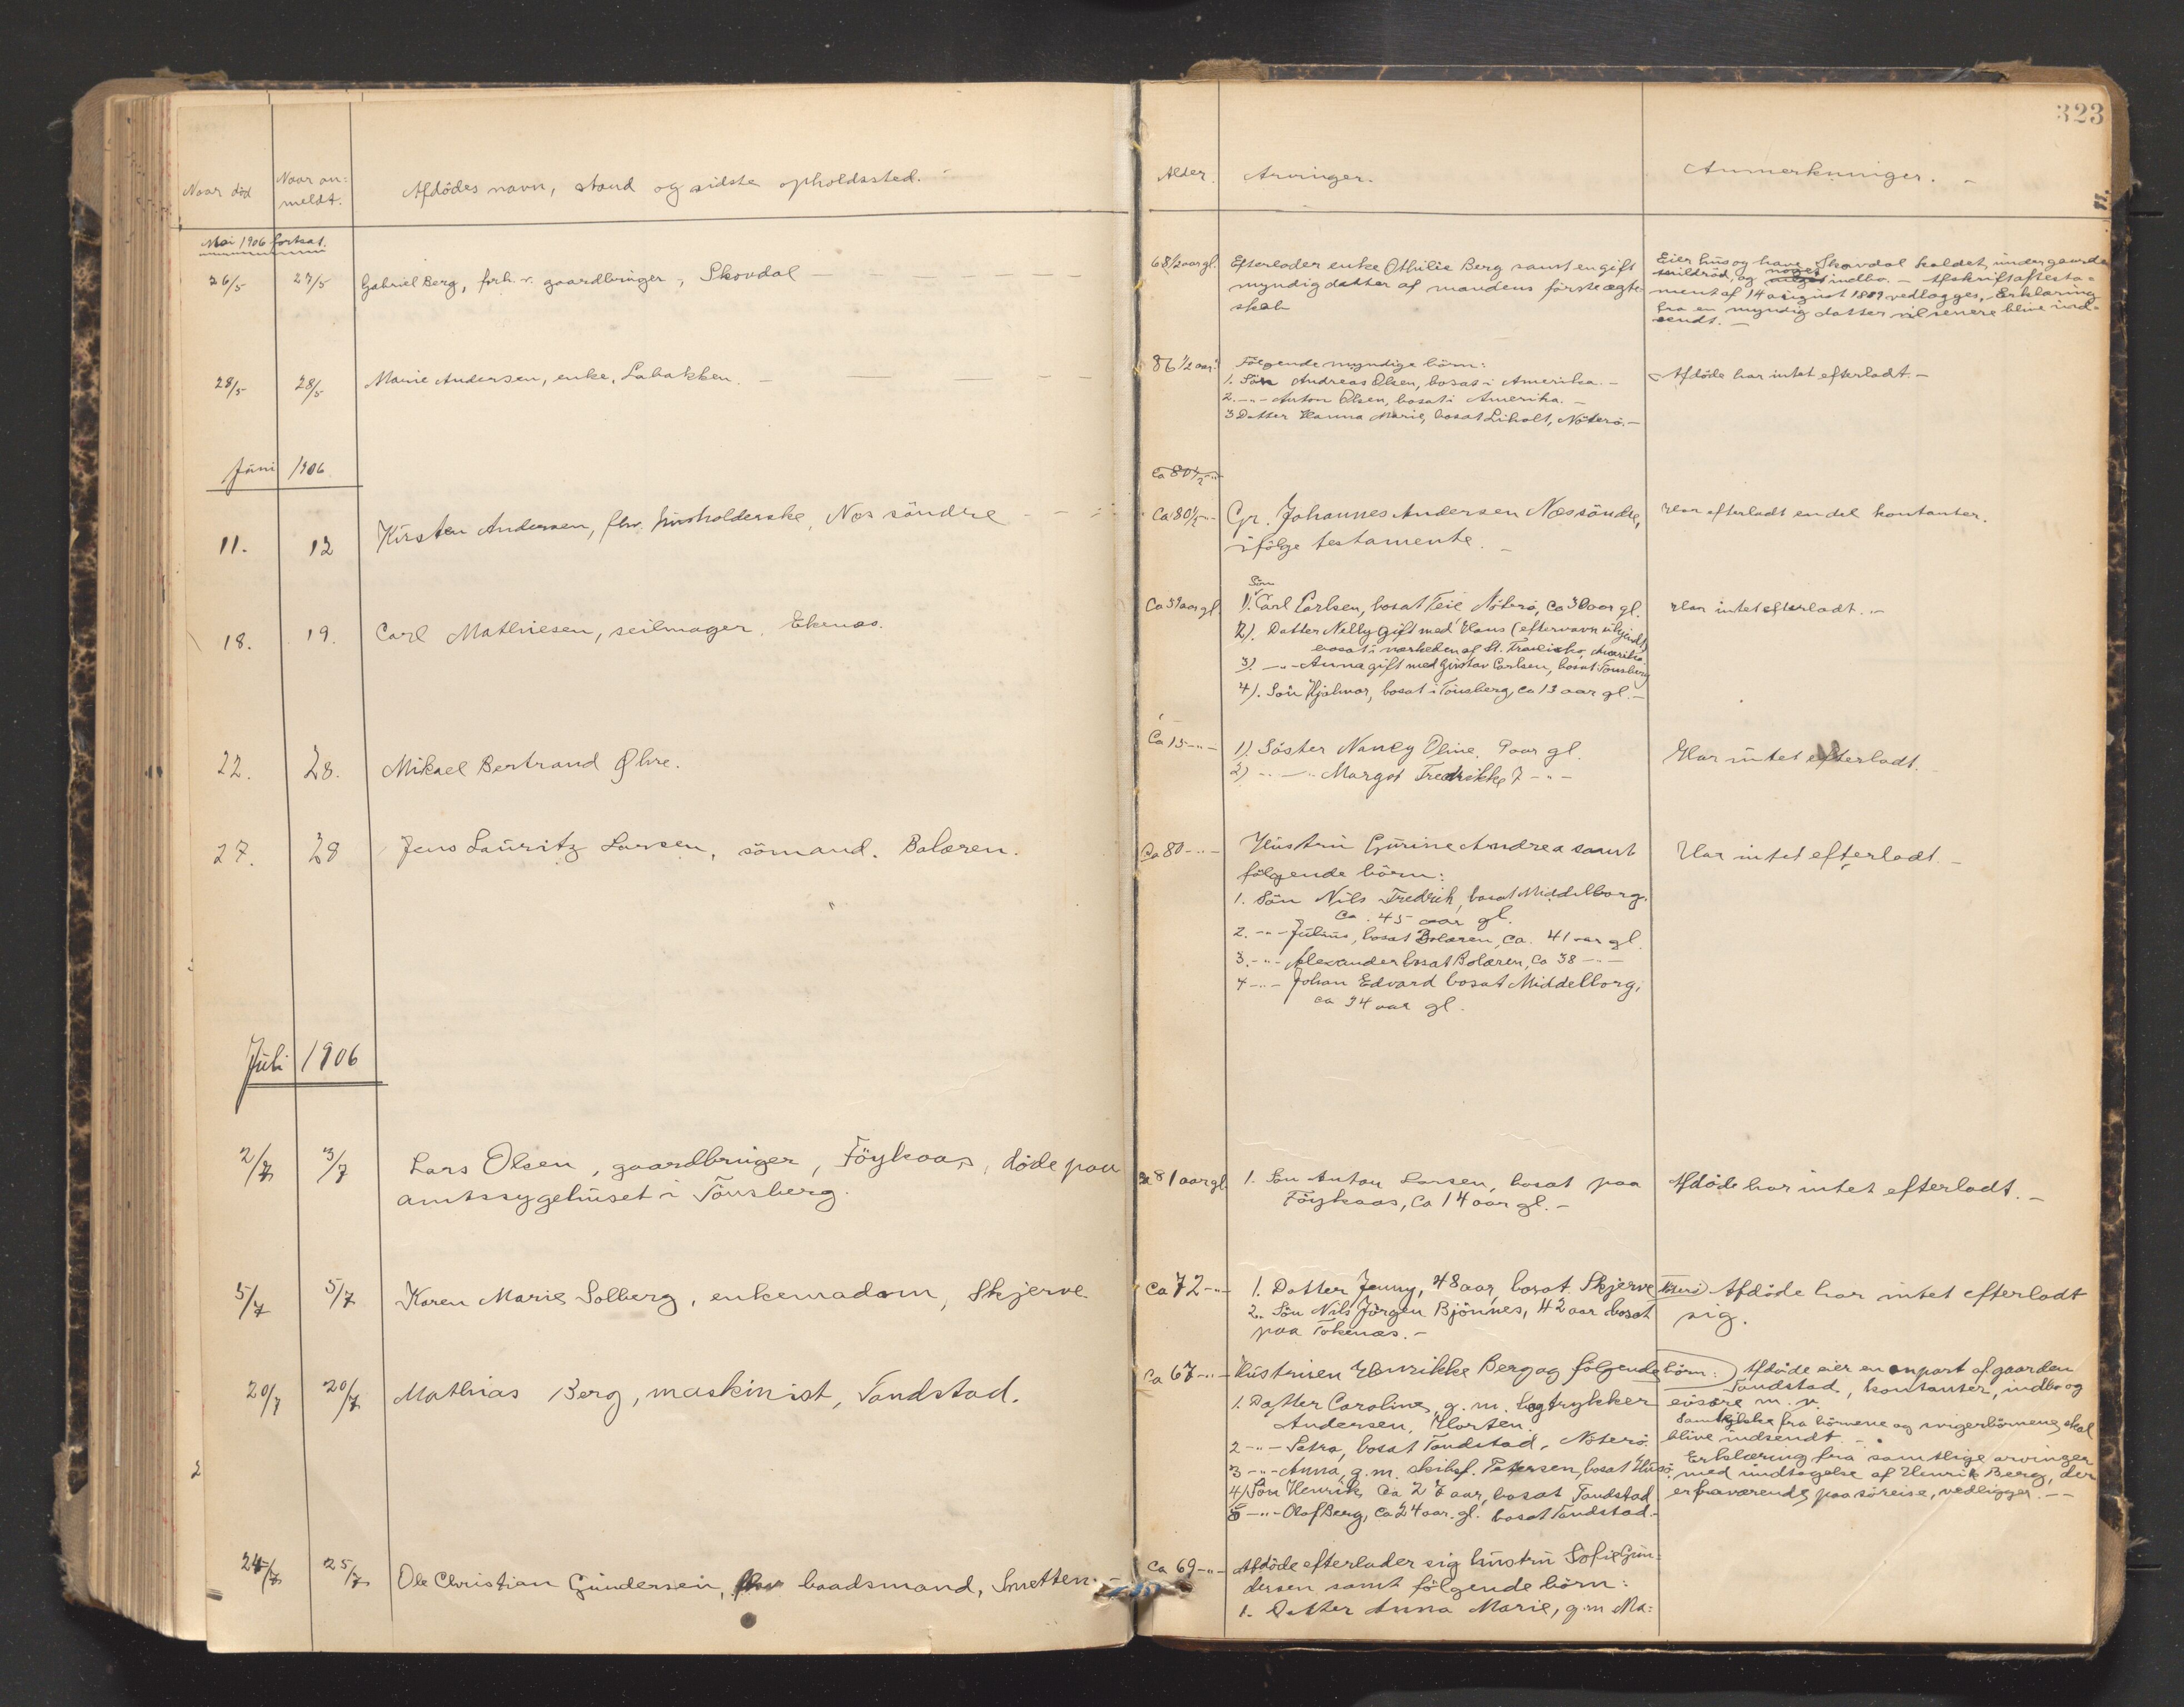 323
11.
Naar död
Naar an=
meldt.
Afdödes navn, stand og sidste opholdssted.
Alder.
Arvinger.
Anmerkninger. -
Mai 1906 fortsat.
26/5 27/5 Gabriel Berg, forh. v. gaardbruger, Skovdal
68 1/2 aar gl.
Efterlader enke Othilie Berg samt en gift
myndig datter af mandens første ægte=
skab
Eier hus og have Skovdal kaldet, under gaarden
og noget indbo. - Afskrift af testa=
ment af 14 august 1889 vedlægges, Erklæring
fra en myndig datter vil senere blive ind=
sendt. -
28/5 28/5 Marie Andersen, enke, Labakken. -
86 1/2 aar
Følgende myndige börn:
1. Sön Andreas Olsen, bosat i Amerika. -
2. -"- Anton Olsen, bosat i Amerika. -
3 Datter Hanna Marie, bosat Liholt, Nöterö. -
Afdöde har intet efterladt. -
Juni 1906
ca 80 1/2 -"-
11. 12 Kirsten Andersen, fhv. husholderske, Nes söndre
Ca 80 1/2 -"-
Gr. Johannes Andersen Nes söndre,
ifölge testamente. -
Har efterladt en del kontanter.
18. 19. Carl Mathiesen, seilmager, Ekenæs.
Ca 59 aar gl.
Sön
1). Carl Carlsen, bosat Teie Nöterö, ca 30 aar gl.
2). Datter Nelly gift med Hans (efternavn ukjendt)
bosat i nærheden af St. Francisko, Amerika.
3). -"- Anna gift med Gustav Carlsen, bosat Tönsberg
4). Sön Hjalmar, bosat i Tönsberg, ca 13 aar gl. -
Har intet efterladt. -
22. 28. Mikael Bertrand Øhre.
Ca 15 -"-
1). Söster Nancy Oline 9 aar gl.
2) -"- Margot Fredrikke 7 -"-
Har intet efterladt.
27. 28 Jens Lauritz Larsen, sömand. Bolæren.
Ca 80 -"-
Hustru Gurine Andrea samt
følgende börn:
1. Sön Nils Fredrik, bosat Middelborg.
ca. 45 aar gl.
2. -"- Julius, bosat Bolæren, ca. 41 aar gl.
3. -"- Alexander bosat Bolæren, ca 38 -"-
4 -"- Johan Edvard bosat Middelborg,
ca 34 aar gl.
Har intet efterladt. -
Juli 1906
2/7 3/7 Lars Olsen, gaardbruger, Föykaas, döde paa
amtssygehuset i Tönsberg.
ca 81 aar gl
1. Sön Anton Larsen, bosat paa
Föykaas, ca 14 aar gl. -
Afdöde har intet efterladt. -
5/7 5/7 Karen Marie Solberg, enkemadam, Skjerve
Ca 72 -"-
1. Datter Jenny, 48 aar, bosat Skjerve
2. Sön Nils Jörgen Bjönnes, 42 aar bosat
paa Tokenæs. -
Afdöde har intet efterladt
sig.
20/7 20/7 Mathias Berg, maskinist, Tandstad.
Ca 67 -"-
Hustruen Henrikke Berg og følgende börn:
1. Datter Caroline, g. m. bogtrykker
Andersen, Horten.
2 -"- Petra, bosat Tandstad, Nöterö.
3 -"- Anna, g. m. skibsf. Petersen, bosat Husö.
4) Sön Henrik, Ca 26 aar, bosat Tandstad
5 -"- Olaf Berg, Ca 24 aar. gl. bosat Tandstad. -
Afdöde eier en anpart af gaarden
Tandstad, kontanter, indbo og
løsöre m. v.
Samtykke fra börnene og svigerbörnene skal
blive indsendt. -
Erklæring fra samtlige arvinger
med undtagelse af Henrik Berg, der
er fraværende paa söreise, vedligger. -
24/7 25/7 Ole Christian Gundersen, fhv baadsmand, Smetten. -
Ca 69 -"-
Afdöde efterlader sig hustru Sofie Gun=
dersen samt følgende börn:
1. Datter Anna Marie, g. m Ma=